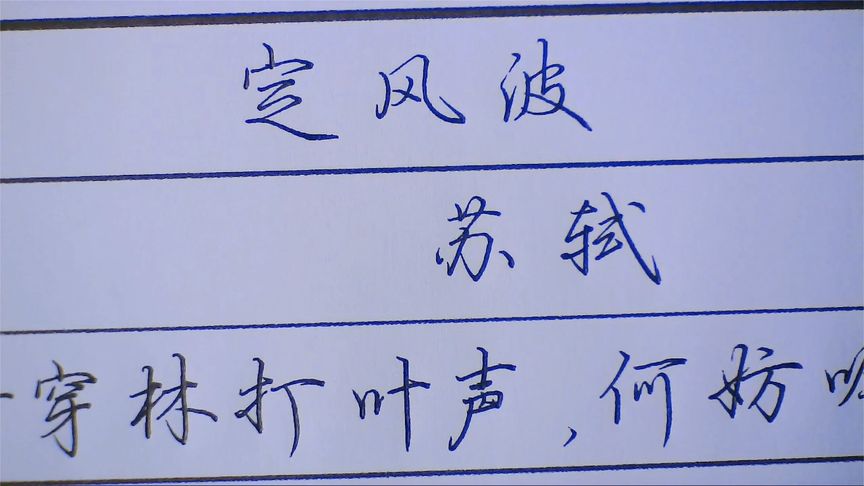 定风波
苏轼
穿林打叶声,何妨